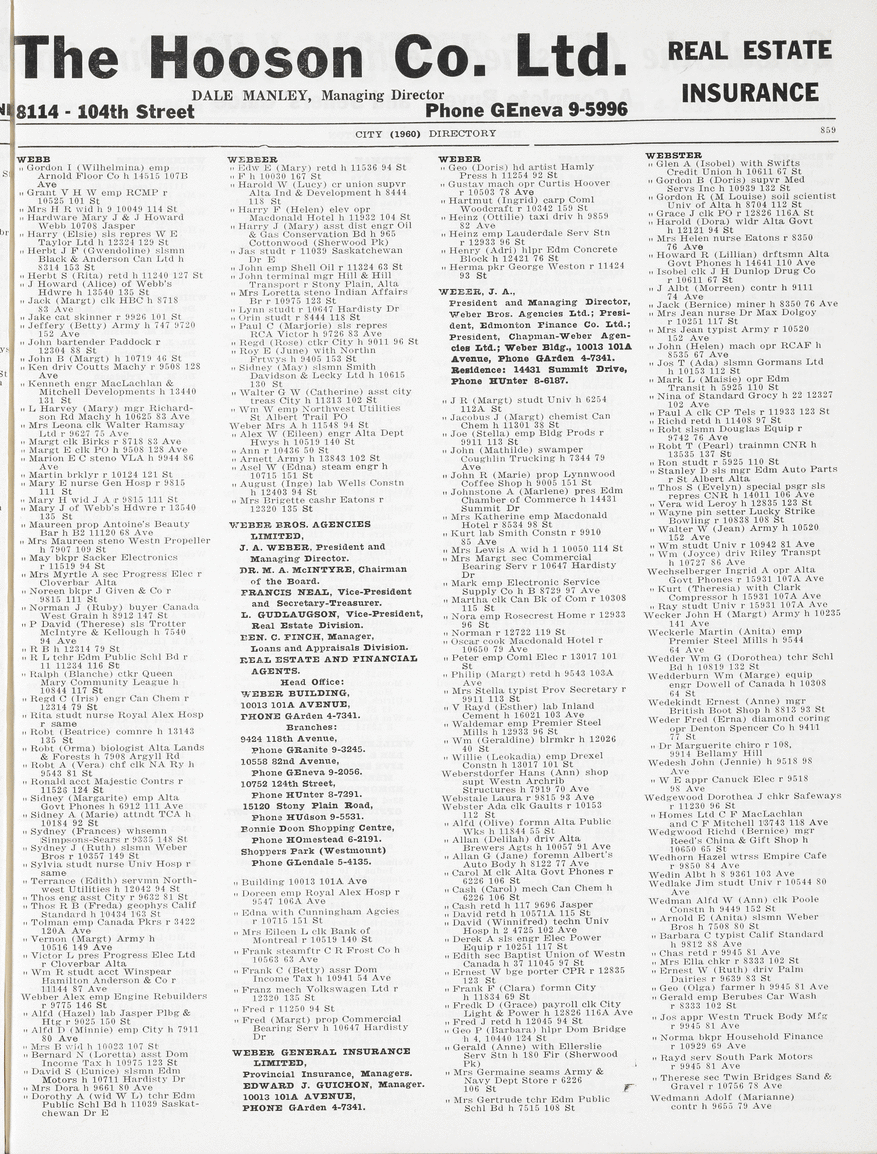 The Hooson Co. Ltd.
REAL ESTATE
INSURANCE
DALE MANLEY, Managing Director
8114 - 104th Street
Phone GEneva 9-5996
CITY (1960) DIRECTORY
859
WEBB
" Gordon I (Wilhelmina) emp
Arnold Floor Co h 14515 107B
Ave
" Grant V H W emp RCMP r
10525 101 St
" Mrs H R wid h 9 10049 114 St
" Hardware Mary J & J Howard
Webb 10708 Jasper
" Harry (Elsie) sls repres W E
Taylor Ltd h 12324 129 St
" Herbt J F (Gwendoline) slsmn
Black & Anderson Can Ltd h
8314 153 St
" Herbt S (Rita) retd h 11240 127 St
" J Howard (Alice) of Webb's
Hdwre h 13540 135 St
" Jack (Margt) clk HBC h 8718
83 Ave
" Jake cat skinner r 9926 101 St
" Jeffery (Betty) Army h 747 9720
152 Ave
" John bartender Paddock r
12304 88 St
" John B (Margt) h 10719 46 St
" Ken driv Coutts Machy r 9508 128
Ave
" Kenneth engr MacLachlan &
Mitchell Developments h 13440
131 St
" L Harvey (Mary) mgr Richard-
son Rd Machy h 10625 83 Ave
" Mrs Leona clk Walter Ramsay
Ltd r 9627 75 Ave
" Margt clk Birks r 8718 83 Ave
" Margt E clk PO h 9508 128 Ave
" Marion E C steno VLA h 9944 86
Ave
" Martin brklyr r 10124 121 St
" Mary E nurse Gen Hosp r 9815
111 St
" Mary H wid J A r 9815 111 St
" Mary J of Webb's Hdwre r 13540
135 St
" Maureen prop Antoine's Beauty
Bar h B2 11120 68 Ave
" Mrs Maureen steno Westn Propeller
h 7907 109 St
" May bkpr Sacker Electronics
r 11519 94 St
" Mrs Myrtle A sec Progress Elec r
Cloverbar Alta
" Noreen bkpr J Given & Co r
9815 111 St
" Norman J (Ruby) buyer Canada
West Grain h 8912 147 St
" P David (Therese) sls Trotter
McIntyre & Kellough h 7540
94 Ave
" R B h 12314 79 St
" R L tchr Edm Public Schl Bd r
11 11234 116 St
" Ralph (Blanche) ctkr Queen
Mary Community League h
10844 117 St
" Regd C (Iris) engr Can Chem r
12314 79 St
" Rita studt nurse Royal Alex Hosp
r same
" Robt (Beatrice) comnre h 13143
135 St
" Robt (Orma) biologist Alta Lands
& Forests h 7908 Argyll Rd
" Robt A (Vera) chf clk NA Ry h
9543 81 St
" Ronald acct Majestic Contrs r
11523 124 St
" Sidney (Margarite) emp Alta
Govt Phones h 6912 111 Ave
" Sidney A (Marie) attndt TCA h
10184 92 St
" Sydney (Frances) whsemn
Simpsons-Sears r 9335 148 St
" Sydney J (Ruth) slsmn Weber
Bros r 10357 149 St
" Sylvia studt nurse Univ Hosp r
same
" Terrance (Edith) servmn North-
west Utilities h 12042 94 St
" Thos eng asst City r 9632 81 St
" Thos R B (Freda) geophys Calif
Standard h 10434 163 St
" Tolman emp Canada Pkrs r 3422
120A Ave
" Vernon (Margt) Army h
10516 149 Ave
" Victor L pres Progress Elec Ltd
r Cloverbar Alta
" Wm R studt acct Winspear
Hamilton Anderson & Co r
11144 87 Ave
Webber Alex emp Engine Rebuilders
r 9775 146 St
" Alfd (Hazel) lab Jasper Plbg &
Htg r 9025 150 St
" Alfd D (Minnie) emp City h 7911
80 Ave
" Mrs B wid h 10023 107 St
" Bernard N (Loretta) asst Dom
Income Tax h 10975 123 St
" David S (Eunice) slsmn Edm
Motors h 10711 Hardisty Dr
" Mrs Dora h 9661 80 Ave
" Dorothy A (wid W L) tchr Edm
Public Schl Bd h 11039 Saskat-
chewan Dr E
WEBBER
" Edw E (Mary) retd h 11536 94 St
" F h 10030 167 St
" Harold W (Lucy) cr union supvr
Alta Ind & Development h 8444
118 St
" Harry F (Helen) elev opr
Macdonald Hotel h 11932 104 St
" Harry J (Mary) asst dist engr Oil
& Gas Conservation Bd h 965
Cottonwood (Sherwood Pk)
" Jas studt r 11039 Saskatchewan
Dr E
" John emp Shell Oil r 11324 63 St
" John terminal mgr Hill & Hill
Transport r Stony Plain, Alta
" Mrs Loretta steno Indian Affairs
Br r 10975 123 St
" Lynn studt r 10647 Hardisty Dr
" Orin studt r 8444 118 St
" Paul C (Marjorie) sls repres
RCA Victor h 9726 83 Ave
" Regd (Rose) ctkr City h 9011 96 St
" Roy E (June) with Northn
Frtwys h 9405 153 St
" Sidney (May) slsmn Smith
Davidson & Lecky Ltd h 10615
130 St
" Walter G W (Catherine) asst city
treas City h 11313 102 St
" Wm W emp Northwest Utilities
St Albert Trail PO
Weber Mrs A h 11548 94 St
" Alex W (Eileen) engr Alta Dept
Hwys h 10519 140 St
" Ann r 10436 50 St
" Arnett Army h 13843 102 St
" Asel W (Edna) steam engr h
10715 151 St
" August (Inge) lab Wells Constn
h 12403 94 St
" Mrs Brigette cashr Eatons r
12320 135 St
WEBER BROS. AGENCIES
LIMITED,
J. A. WEBER, President and
Managing Director.
DR. M. A. McINTYRE, Chairman
of the Board.
FRANCIS NEAL, Vice-President
and Secretary-Treasurer.
L. GUDLAUGSON, Vice-President,
Real Estate Division.
BEN. C. FINCH, Manager,
Loans and Appraisals Division.
REAL ESTATE AND FINANCIAL
AGENTS.
Head Office:
WEBER BUILDING,
10013 101A AVENUE,
PHONE GArden 4-7341.
Branches:
9424 118th Avenue,
Phone GRanite 9-3245.
10558 82nd Avenue,
Phone GEneva 9-2056.
10752 124th Street,
Phone HUnter 8-7291.
15120 Stony Plain Road,
Phone HUdson 9-5531.
Bonnie Doon Shopping Centre,
Phone HOmestead 6-2191.
Shoppers Park (Westmount)
Phone GLendale 5-4135.
" Building 10013 101A Ave
" Doreen emp Royal Alex Hosp r
9547 106A Ave
" Edna with Cunningham Agcies
r 10715 151 St
" Mrs Eileen L clk Bank of
Montreal r 10519 140 St
" Frank steamftr C R Frost Co h
10563 63 Ave
" Frank C (Betty) assr Dom
Income Tax h 10941 54 Ave
" Franz mech Volkswagen Ltd r
12320 135 St
" Fred r 11250 94 St
" Fred (Margt) prop Commercial
Bearing Serv h 10647 Hardisty
Dr
WEBER GENERAL INSURANCE
LIMITED,
Provincial Insurance, Managers.
EDWARD J. GUICHON, Manager.
10013 101A AVENUE,
PHONE GArden 4-7341.
WEBER
" Geo (Doris) hd artist Hamly
Press h 11254 92 St
" Gustav mach opr Curtis Hoover
r 10503 78 Ave
" Hartmut (Ingrid) carp Coml
Woodcraft r 10342 159 St
" Heinz (Ottilie) taxi driv h 9859
82 Ave
" Heinz emp Lauderdale Serv Stn
r 12933 96 St
" Henry (Adri) hlpr Edm Concrete
Block h 12421 76 St
" Herma pkr George Weston r 11424
93 St
WEBER, J. A.,
President and Managing Director,
Weber Bros. Agencies Ltd.; Presi-
dent, Edmonton Finance Co. Ltd.;
President, Chapman-Weber Agen-
cies Ltd.; Weber Bldg., 10013 101A
Avenue, Phone GArden 4-7341.
Residence: 14431 Summit Drive,
Phone HUnter 8-6187.
" J R (Margt) studt Univ h 6254
112A St
" Jacobus J (Margt) chemist Can
Chem h 11301 38 St
" Joe (Stella) emp Bldg Prods r
9911 113 St
" John (Mathilde) swamper
Coughlin Trucking h 7344 79
Ave
" John R (Marie) prop Lynnwood
Coffee Shop h 9005 151 St
" Johnstone A (Marlene) pres Edm
Chamber of Commerce h 14431
Summit Dr
" Mrs Katherine emp Macdonald
Hotel r 8534 98 St
" Kurt lab Smith Constn r 9910
85 Ave
" Mrs Lewis A wid h 1 10050 114 St
" Mrs Margt sec Commercial
Bearing Serv r 10647 Hardisty
Dr
" Mark emp Electronic Service
Supply Co h B 8729 97 Ave
" Martha clk Can Bk of Com r 10308
115 St
" Nora emp Rosecrest Home r 12933
96 St
" Norman r 12722 119 St
" Oscar cook Macdonald Hotel r
10650 79 Ave
" Peter emp Coml Elec r 13017 101
St
" Philip (Margt) retd h 9543 103A
Ave
" Mrs Stella typist Prov Secretary r
9911 113 St
" V Rayd (Esther) lab Inland
Cement h 16021 103 Ave
" Waldemar emp Premier Steel
Mills h 12933 96 St
" Wm (Geraldine) blrmkr h 12026
40 St
" Willie (Leokadia) emp Drexel
Constn h 13017 101 St
Weberstdorfer Hans (Ann) shop
supt Westn Archrib
Structures h 7919 70 Ave
Webstale Laura r 9815 93 Ave
Webster Ada clk Gaults r 10153
112 St
" Alfd (Olive) formn Alta Public
Wks h 11844 55 St
" Allan (Delilah) driv Alta
Brewers Agts h 10057 91 Ave
" Allan G (Jane) foremn Albert's
Auto Body h 8122 77 Ave
" Carol M clk Alta Govt Phones r
6226 106 St
" Cash (Carol) mech Can Chem h
6226 106 St
" Cash retd h 117 9696 Jasper
" David retd h 10571A 115 St
" David (Winnifred) techn Univ
Hosp h 2 4725 102 Ave
" Derek A sls engr Elec Power
Equip r 10251 117 St
" Edith sec Baptist Union of Westn
Canada h 37 11045 97 St
" Ernest W bge porter CPR r 12835
123 St
" Frank F (Clara) formn City
h 11834 69 St
" Fredk D (Grace) payroll clk City
Light & Power h 12826 116A Ave
" Fred J retd h 12045 94 St
" Geo P (Barbara) hlpr Dom Bridge
h 4, 10440 124 St
" Gerald (Anne) with Ellerslie
Serv Stn h 180 Fir (Sherwood
Pk)
" Mrs Germaine seams Army &
Navy Dept Store r 6226
106 St
" Mrs Gertrude tchr Edm Public
Schl Bd h 7515 108 St
WEBSTER
" Glen A (Isobel) with Swifts
Credit Union h 10611 67 St
" Gordon B (Doris) supvr Med
Servs Inc h 10939 132 St
" Gordon R (M Louise) soil scientist
Univ of Alta h 8704 112 St
" Grace J clk PO r 12826 116A St
" Harold (Dora) wldr Alta Govt
h 12121 94 St
" Mrs Helen nurse Eatons r 8350
76 Ave
" Howard R (Lillian) drftsmn Alta
Govt Phones h 14641 110 Ave
" Isobel clk J H Dunlop Drug Co
r 10611 67 St
" J Albt (Morreen) contr h 9111
74 Ave
" Jack (Bernice) miner h 8350 76 Ave
" Mrs Jean nurse Dr Max Dolgoy
r 10251 117 St
" Mrs Jean typist Army r 10520
152 Ave
" John (Helen) mach opr RCAF h
8535 67 Ave
" Jos T (Ada) slsmn Gormans Ltd
h 10153 112 St
" Mark L (Maisie) opr Edm
Transit h 5925 110 St
" Nina of Standard Grocy h 22 12327
102 Ave
" Paul A clk CP Tels r 11933 123 St
" Richd retd h 11408 97 St
" Robt slsmn Douglas Equip r
9742 76 Ave
" Robt T (Pearl) trainmn CNR h
13535 137 St
" Ron studt r 5925 110 St
" Stanley D sls mgr Edm Auto Parts
r St Albert Alta
" Thos S (Evelyn) special psgr sls
repres CNR h 14011 106 Ave
" Vera wid Leroy h 12835 123 St
" Wayne pin setter Lucky Strike
Bowling r 10838 108 St
" Walter W (Jean) Army h 10520
152 Ave
" Wm studt Univ r 10942 81 Ave
" Wm (Joyce) driv Riley Transpt
h 10727 86 Ave
Wechselberger Ingrid A opr Alta
Govt Phones r 15931 107A Ave
" Kurt (Theresia) with Clark
Compressor h 15931 107A Ave
" Ray studt Univ r 15931 107A Ave
Wecker Jonn H (Margt) Army h 10235
141 Ave
Weckerle Martin (Anita) emp
Premier Steel Mills h 9544
64 Ave
Wedder Wm G (Dorothea) tchr Schl
Bd h 10819 132 St
Wedderburn Wm (Marge) equip
engr Dowell of Canada h 10308
64 St
Wedekindt Ernest (Anne) mgr
British Boot Shop h 8813 93 St
Weder Fred (Erna) diamond coring
opr Denton Spencer Co h 9411
77 St
" Dr Marguerite chiro r 108,
9914 Bellamy Hill
Wedesh John (Jennie) h 9518 98
Ave
" W E appr Canuck Elec r 9518
98 Ave
Wedgewood Dorothea J chkr Safeways
r 11230 96 St
" Homes Ltd C F MacLachlan
and C F Mitchell 13743 118 Ave
Wedgwood Richd (Bernice) mgr
Reed's China & Gift Shop h
10650 65 St
Wedhorn Hazel wtrss Empire Cafe
r 9850 84 Ave
Wedin Albt h 8 9361 103 Ave
Wedlake Jim studt Univ r 10544 80
Ave
Wedman Alfd W (Ann) clk Poole
Constn h 9449 152 St
" Arnold E (Anita) slsmn Weber
Bros h 7508 80 St
" Barbara C typist Calif Standard
h 9812 88 Ave
" Chas retd r 9945 81 Ave
" Mrs Ella chkr r 8333 102 St
" Ernest W (Ruth) driv Palm
Dairies r 9639 83 St
" Geo (Olga) farmer h 9945 81 Ave
" Gerald emp Berubes Car Wash
r 8333 102 St
" Jos appr Westn Truck Body Mfg
r 9945 81 Ave
" Norma bkpr Household Finance
r 10929 69 Ave
" Rayd serv South Park Motors
r 9945 81 Ave
" Therese sec Twin Bridges Sand &
Gravel r 10756 78 Ave
Wedmann Adolf (Marianne)
contr h 9655 79 Ave